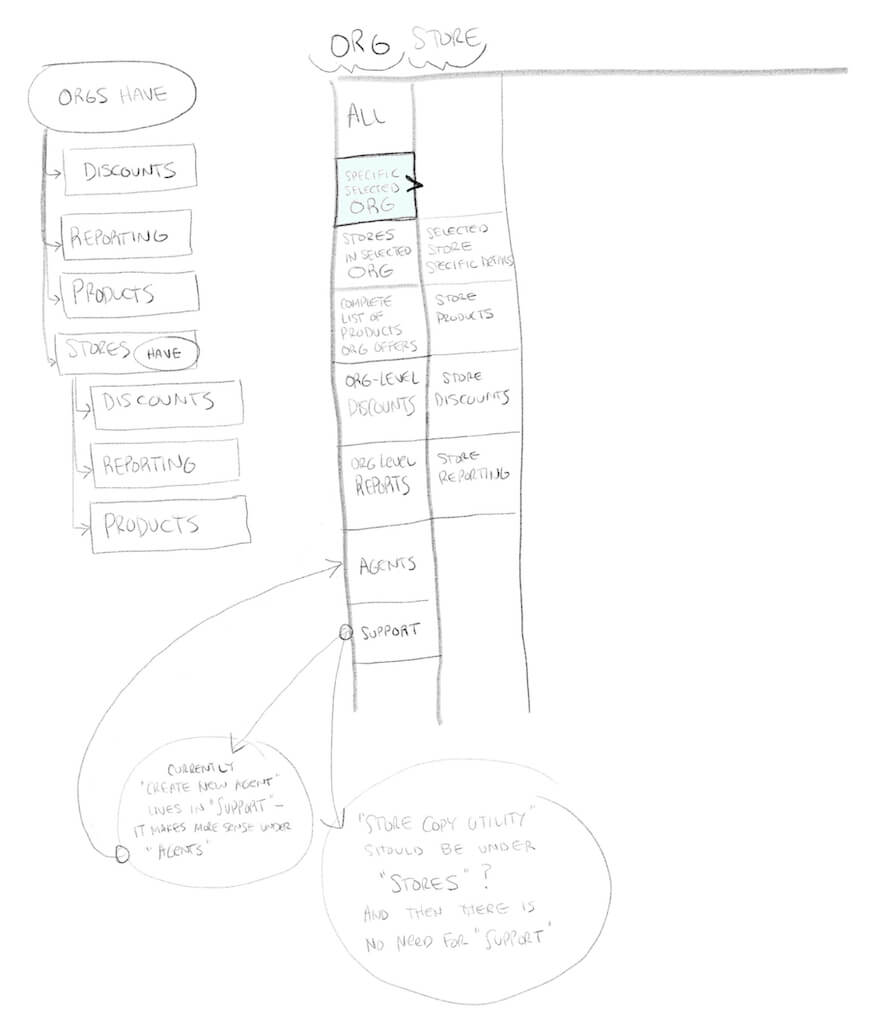 ORG STORE
ORGS HAVE
DISCOUNTS
REPORTING
PRODUCTS
STORES HAVE
DISCOUNTS
REPORTING
PRODUCTS
ALL
SPECIFIC
SELECTED >
ORG
STORES
IN SELECTED
ORG
SELECTED
STORE
SPECIFIC DETAILS
COMPLETE
LIST OF
PRODUCTS
ORG OFFERS
STORE
PRODUCTS
ORG-LEVEL
DISCOUNTS
STORE
DISCOUNTS
ORG LEVEL
REPORTS
STORE
REPORTING
AGENTS
SUPPORT
CURRENTLY
"CREATE NEW AGENT"
LIVES IN "SUPPORT" –
IT MAKES MORE SENSE UNDER
"AGENTS"
"STORE COPY UTILITY"
SHOULD BE UNDER
"STORES"?
AND THEN THERE IS
NO NEED FOR "SUPPORT"